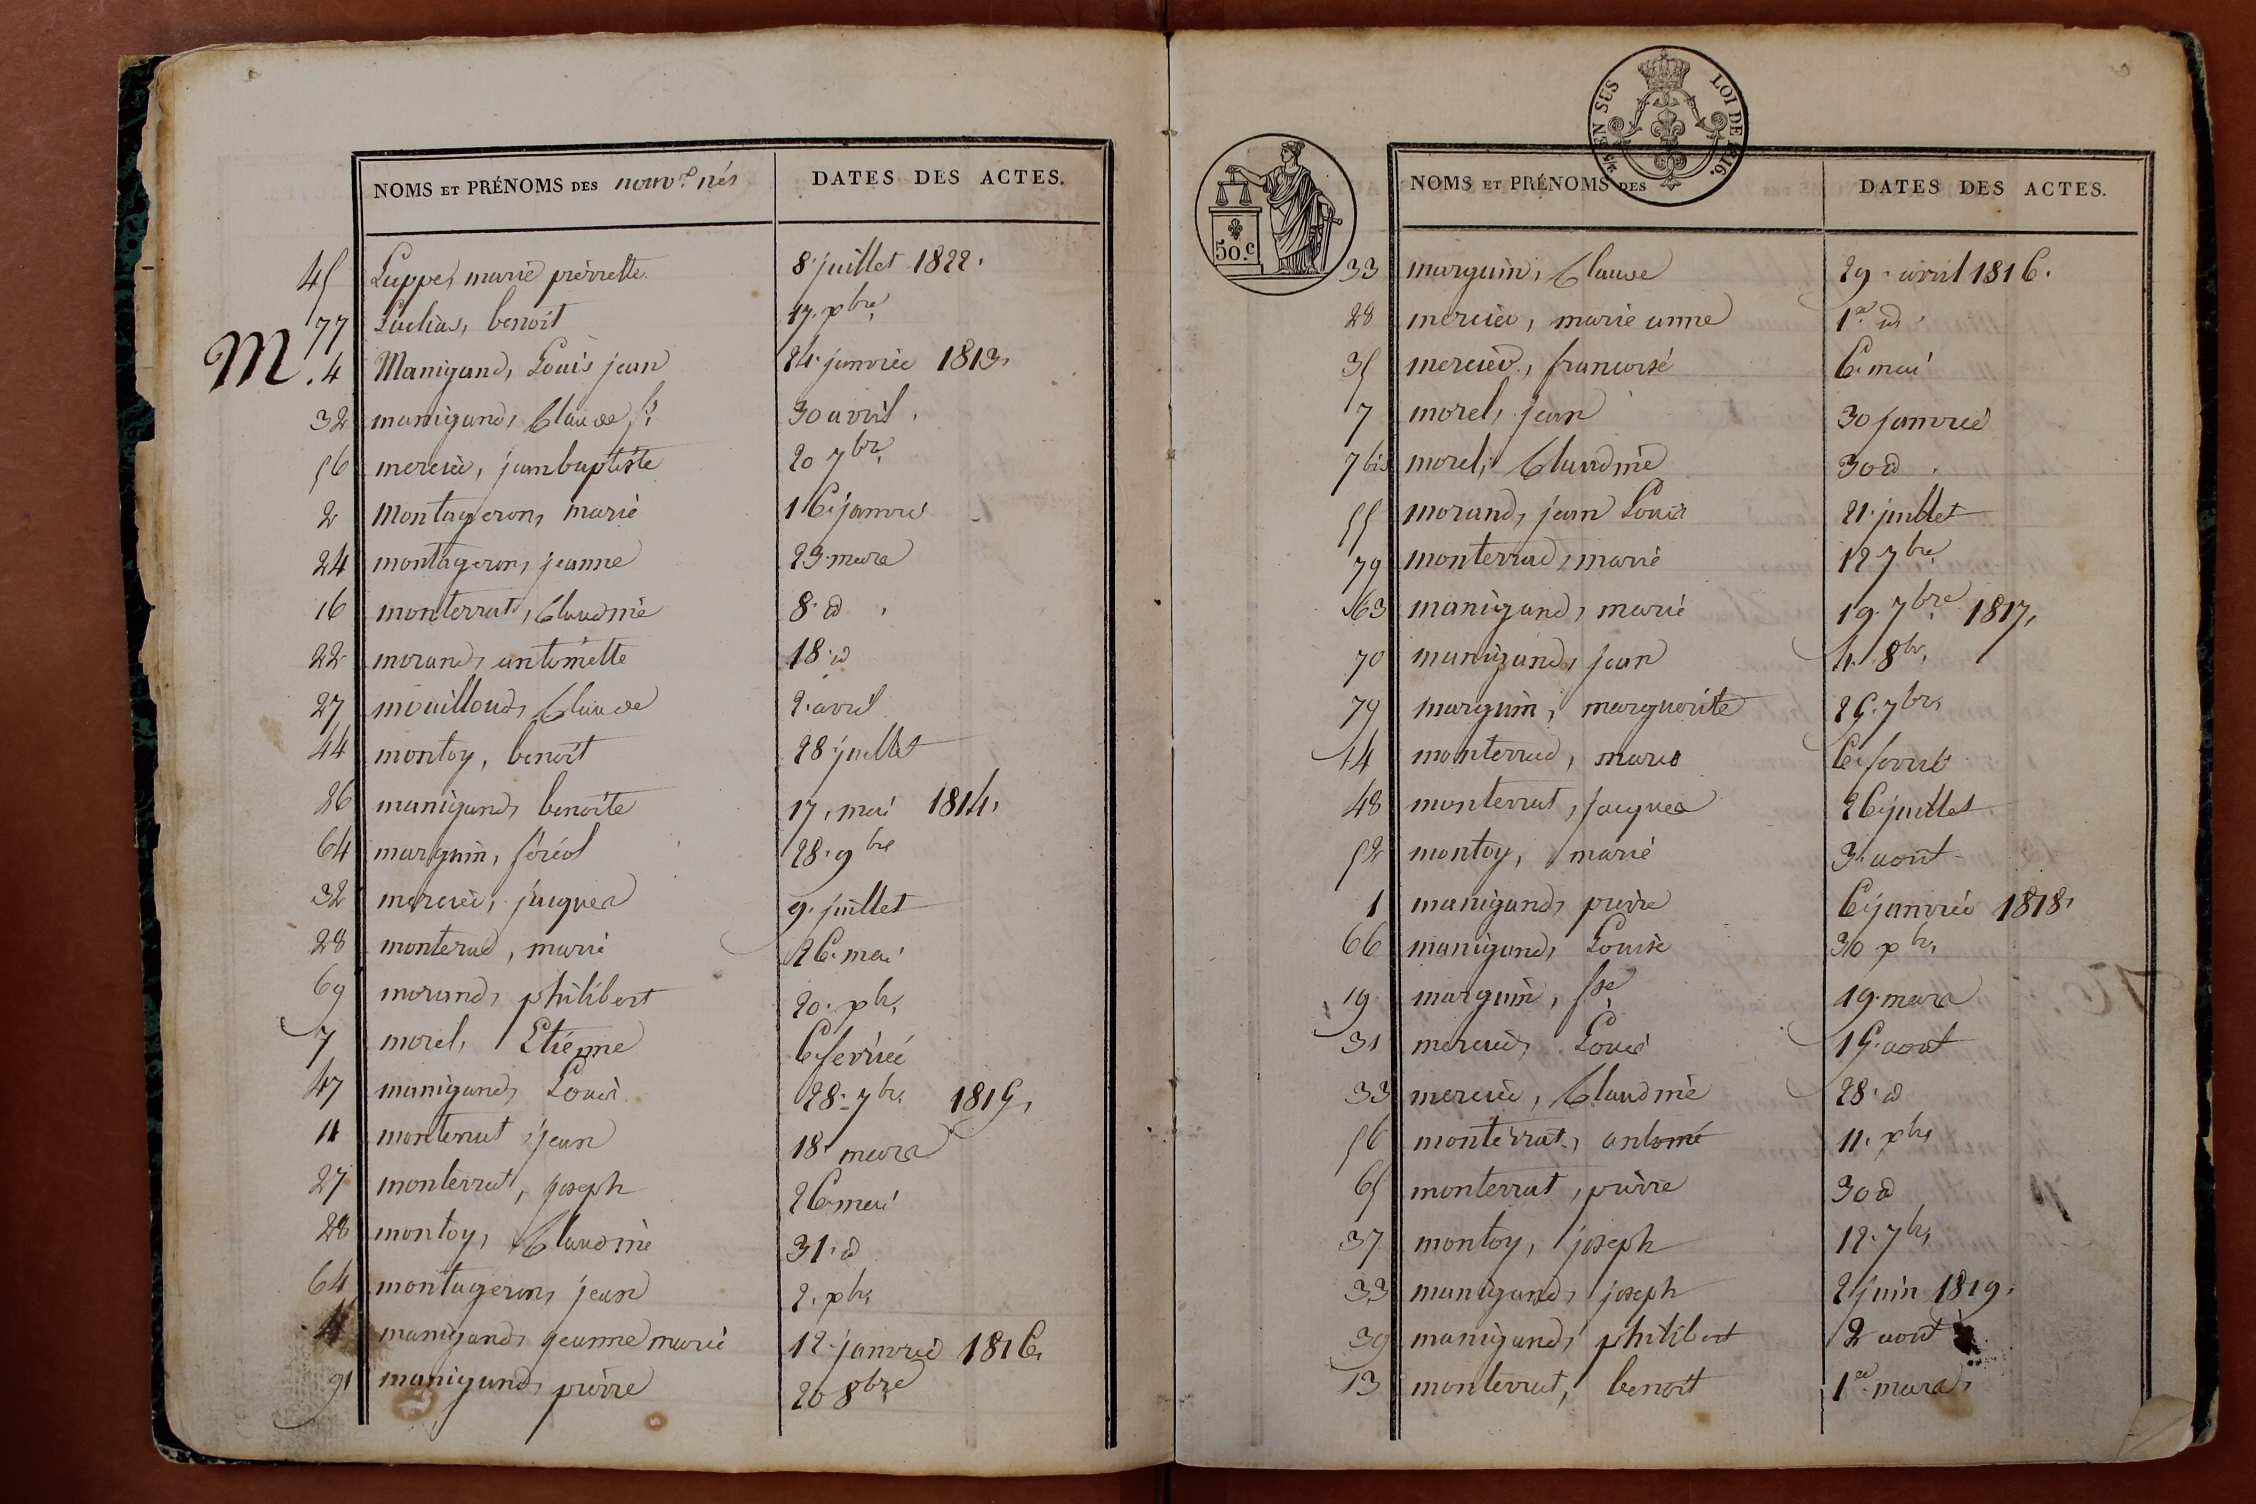 NOMS ET PRÉNOMS DES nouv.x nés DATES DES ACTES.
45 Luppe, marie pierrette 8 juillet 1822.
77 benoit 17. xbre
M. 4 Manigand, Louis jean 24 janvier 1813.
32 manigand, Claude fs 30 avril.
56 mercier, jean baptiste 20 7bre
2 Montageron, marie 16 janvier
24 montageron, jeanne 23 mars
16 monterrat, Claudine 8. d
22 morand, antoinette 18. d
27 mouilloud, Claude 2. avril
44 montoy, benoît 28 juillet
26 manigand, benoite 17, mai 1814,
64 marguin, féréol 28. 9bre
32 mercier, jacques 9. juillet
28 monterad, marie 26. mai
69 morand, philibert 20. xbre
7 morel, Etienne 6 fevrier
47 manigand, Louis 28. 7bre 1815,
11 monterrat, jean 18 mars
27 monterrat, joseph 26 mai
28 montoy, Claudine 31. d
64 montageron, jean 2. xbre
manigand, jeanne marie 12. janvier 1816,
91 manigand, pierre 20 8bre
SES LOI DE 1816.
50.c
NOMS ET PRÉNOMS DES DATES DES ACTES.
33 marguin, Claude 29. avril 1816.
28 mercier, marie anne 1er d
35 mercier, francoise 6. mai
7 morel, jean 30 janvier
7 bis morel, Claudine 30 d.
55 morand, jean Louis 21. juillet
79 monterrad, marie 12 7bre
63 manigand, marie 19. 7bre 1817,
70 manigand, jean 4. 8bre
79 marguin, marguerite 25. 7bre
14 monterrad, marie 6 fevrier
48 monterrat, jacques 26 juillet
52 montoy, marie 3. aout
1 manigand, pierre 6 janvier 1818,
66 manigand, Louise 30 xbre
19 marguin, fse 19. mars
31 mercier, Louis 15. aout
33 mercier, Claudine 28. d
56 monterrat, antoine 11. xbre
65 monterrat, pierre 30 d
37 montoy, joseph 12. 7bre
33 manigand, joseph 2 juin 1819.
39 manigand, philibert 2 aout
13 monterrat, benoit 1er mars